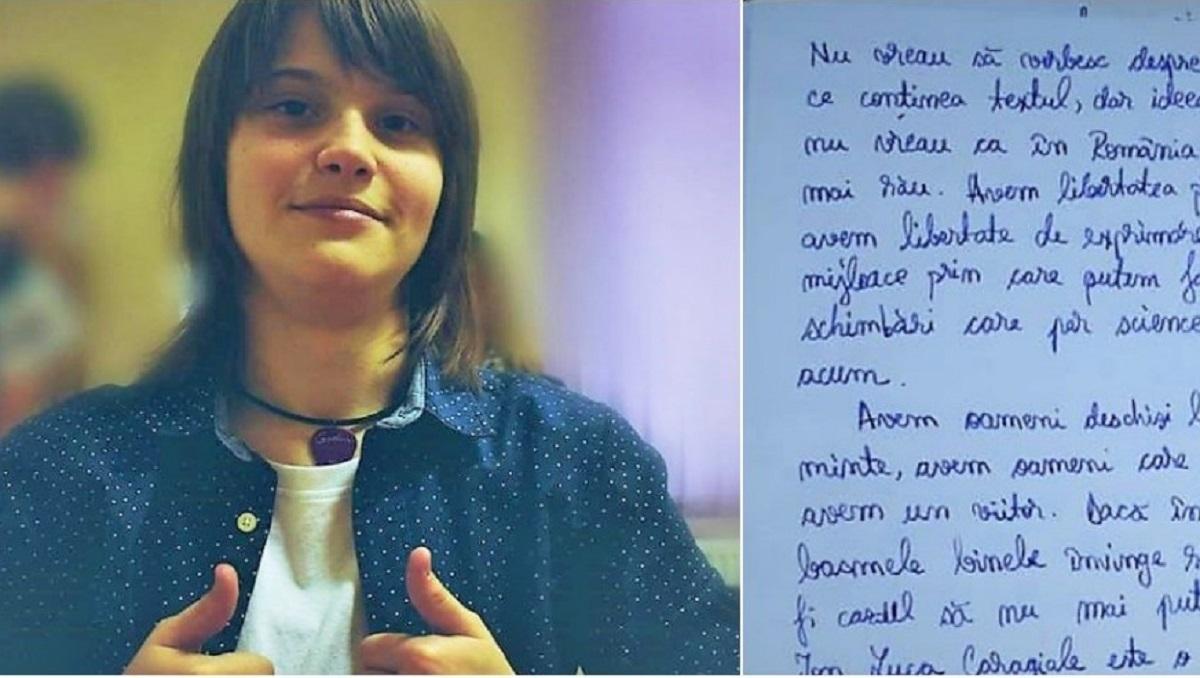 Nu vreau să vorbesc despre
ce conținea textul, dar idee
nu vreau ca în România
mai rău. Avem libertatea p
avem libertate de exprimare
mijloace prin care putem fa
schimbări care par science
acum.
Avem oameni deschiși l
minte, avem oameni care
avem un viitor. Dacă în
basmele binele învinge r
fi cazul să nu mai put
Ion Luca Caragiale este o